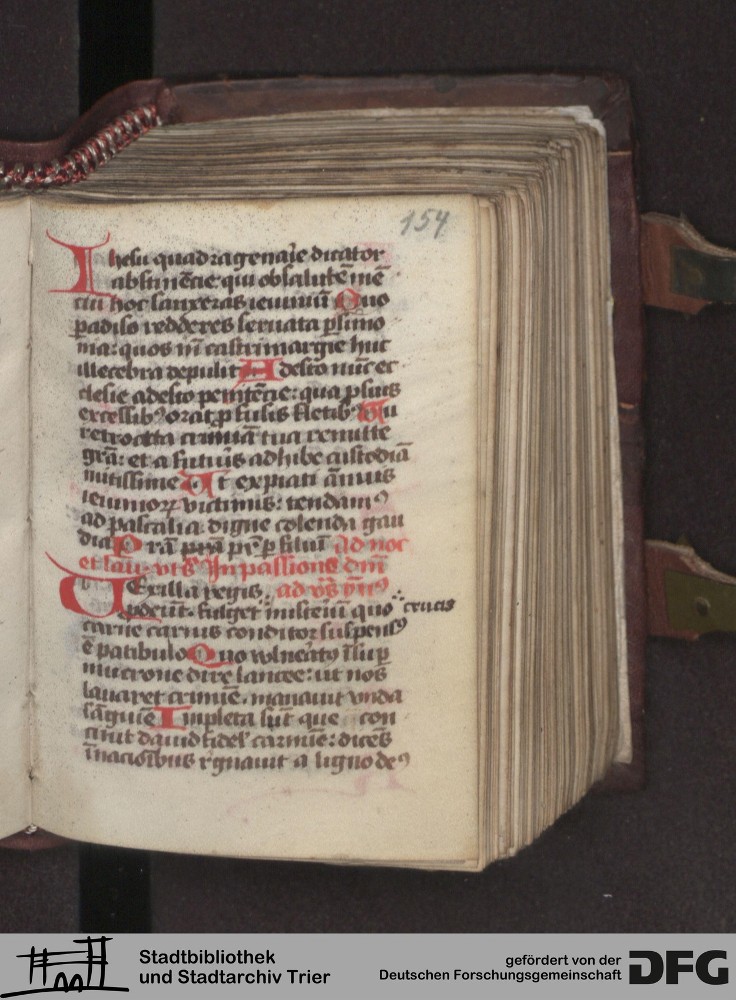 154
Ihesu quadragenaŕie dicator
abstinēcie: qui ob salutē mē
tiū hoc sanxeras ieiuniū Quo
ꝑadiso redderes seruata ꝑsimo
nia: quos īn castrimargie huc
illecebra depulit Adesto nūc ec
clesie adesto penitēcie: qua ꝓ suis
excessibꝰ orat ꝓfusis fletibꝰ Tu
retroacta crimīa tua remitte
grā: et a futuris adhibe custodiā
mitissime Ut expiati ānuis
ieiuniorꝝ victimis: tendamꝰ
ad pascalia digne colenda gau
dia Prā pr̄a pr̄ ꝑ filiū Ad noc
et lau. vt s̄ In passione dnī
Vexilla regis ad vꝰs ym̄ꝰ
ꝓdeūt. fulget misteriū quo crucis
carne carnis conditor suspensꝰ
ē patibulo Quo vulneratꝰ īsuꝑ
mucrone dire lancee: ut nos
lauaret crimīe. manauit vnda
sāguīe Impleta sūt que con
cinit dauid fidelꝰ carmīe: dicēs
ī nacionibus rͤgnauit a ligno deꝰ
Stadtbibliothek
und Stadtarchiv Trier
gefördert von der
Deutschen Forschungsgemeinschaft
DFG